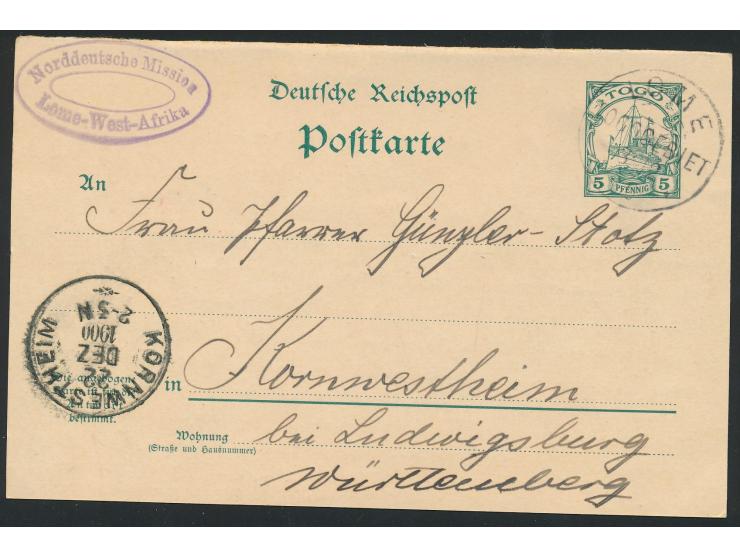 Norddeutsche Mission
Lome-West-Afrika
Deutsche Reichspost
Postkarte
TOGO
5 PFENNIG 5
LOME
TOGOGEBIET
An
Frau Pfarrer Günzler-Stotz
in Kornwestheim
bei Ludwigsburg
Württemberg
Wohnung
(Straße und Hausnummer)
KORNWESTHEIM
22
DEZ
1900
2-3N
Die angebogene
bestimmt.